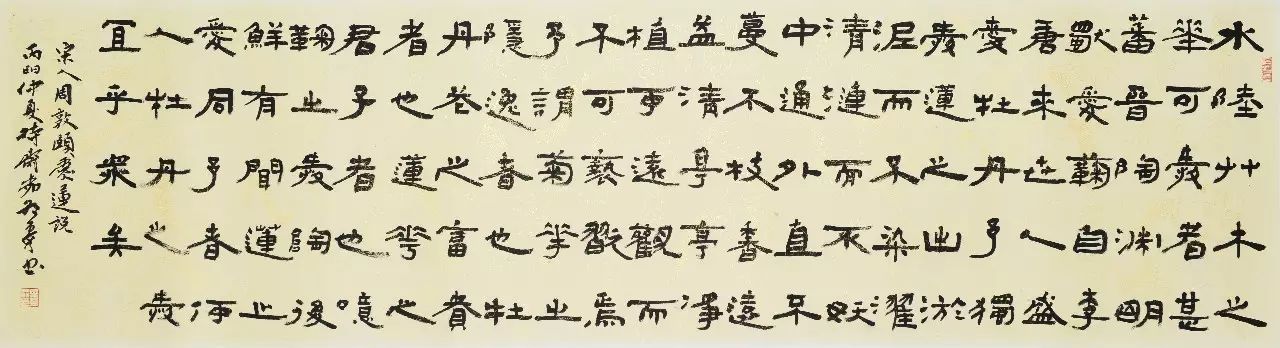 水陸艸木之
華可愛者甚
蕃晉陶淵明
獨愛鞠自李
唐來世人盛
愛牡丹予獨
愛蓮之出淤
泥而不染濯
清漣而不妖
中通外直不
蔓不枝香遠
益清亭亭淨
植可遠觀而
不可褻翫焉
予謂菊華之
隱逸者也牡
丹花之富貴
者也蓮花之
君子者也噫
鞠之愛陶後
鮮有聞蓮之
愛同予者何
人牡丹之愛
宜乎眾矣
宋人周敦頤愛蓮説
丙申仲夏 書